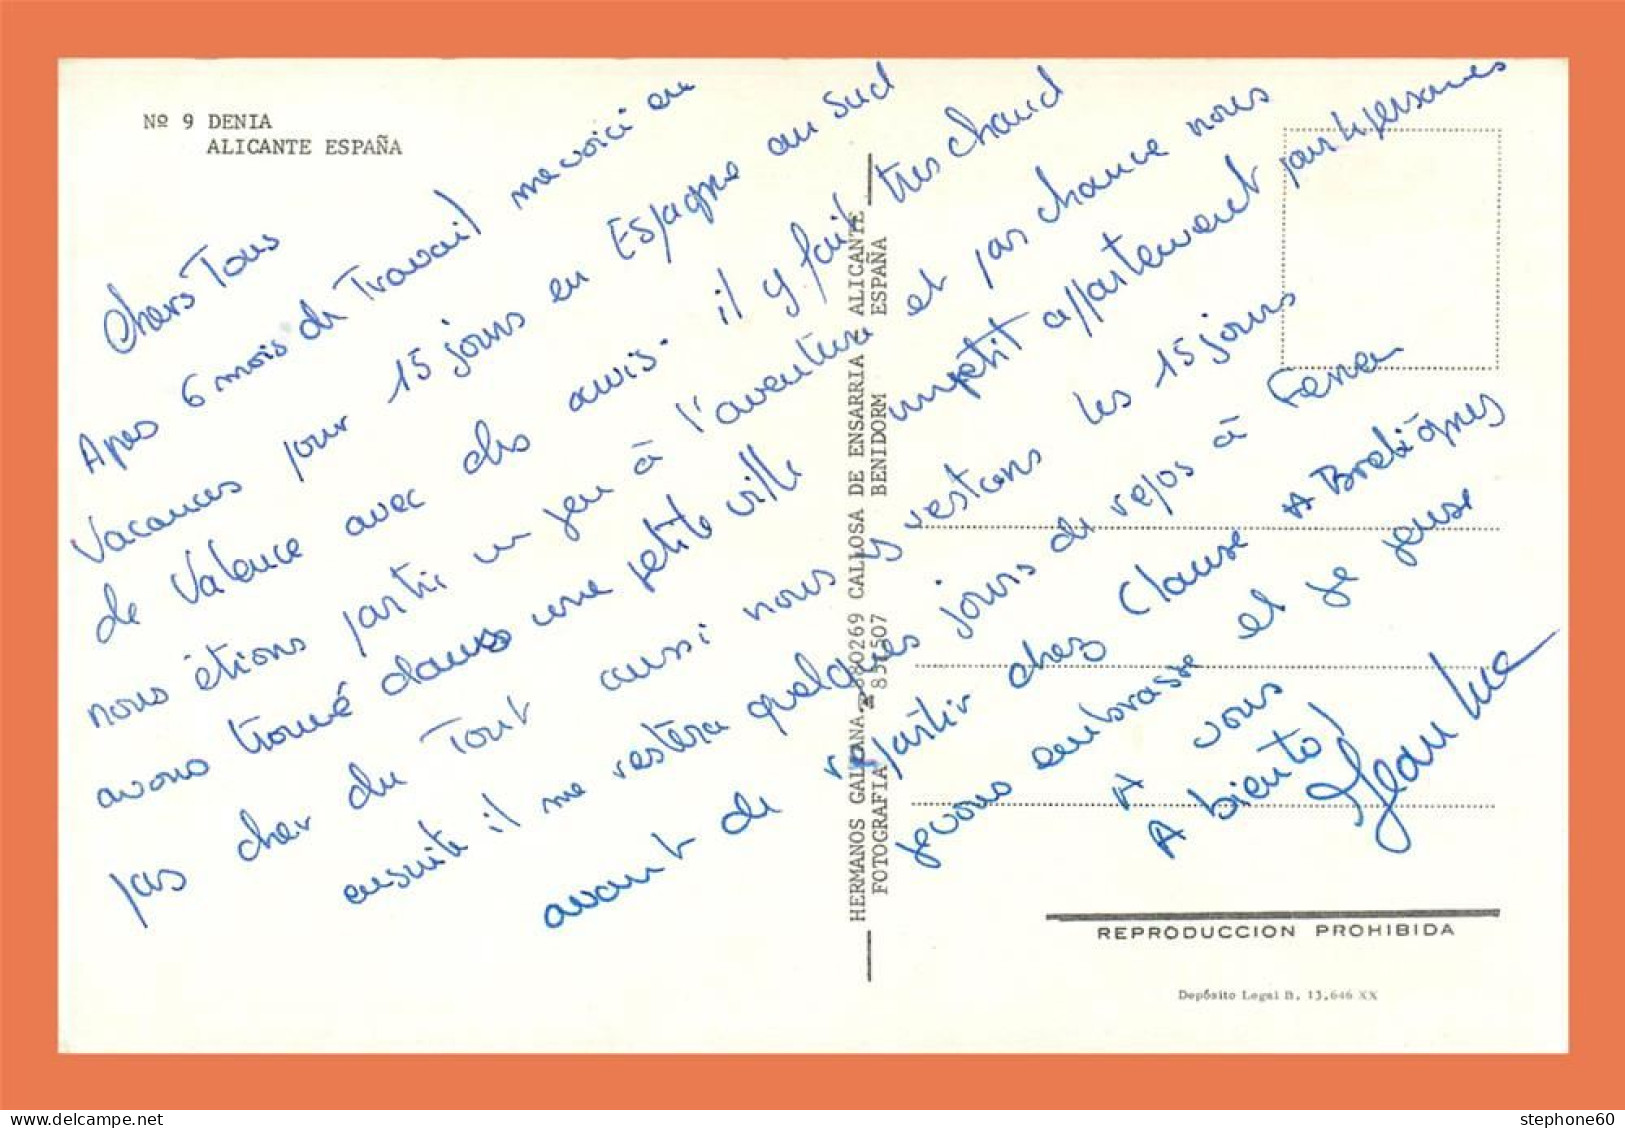 Nº 9 DENIA
ALICANTE ESPAÑA
Chers Tous
Apres 6 mois de Travail me voici en
Vacances pour 15 jours en Espagne au Sud
de Valence avec des amis. il y fait tres chaud
nous étions partir un peu à l'aventure et par chance nous
avons trouvé dans une petite ville un petit appartement pour 4 personnes
pas cher du Tout aussi nous y restons les 15 jours
ensuite il me restera quelques jours de repos à
avant de repartir chez Clause A Bretignes
je vous embrasse et je pense
A vous
A bientot
Jean Luc
HERMANOS GALIANA 880269 CALLOSA DE ENSARRIA - ALICANTE
FOTOGRAFIA BENIDORM ESPAÑA
REPRODUCCION PROHIBIDA
Depósito Legal B. 13,646 XX
stephone60